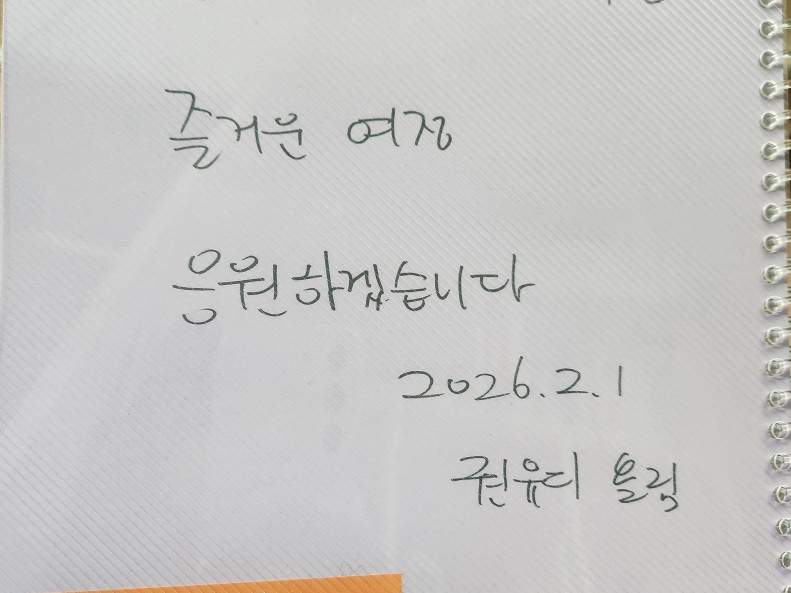 즐거운 여정
응원하겠습니다
2026.2.1
권유디 올림